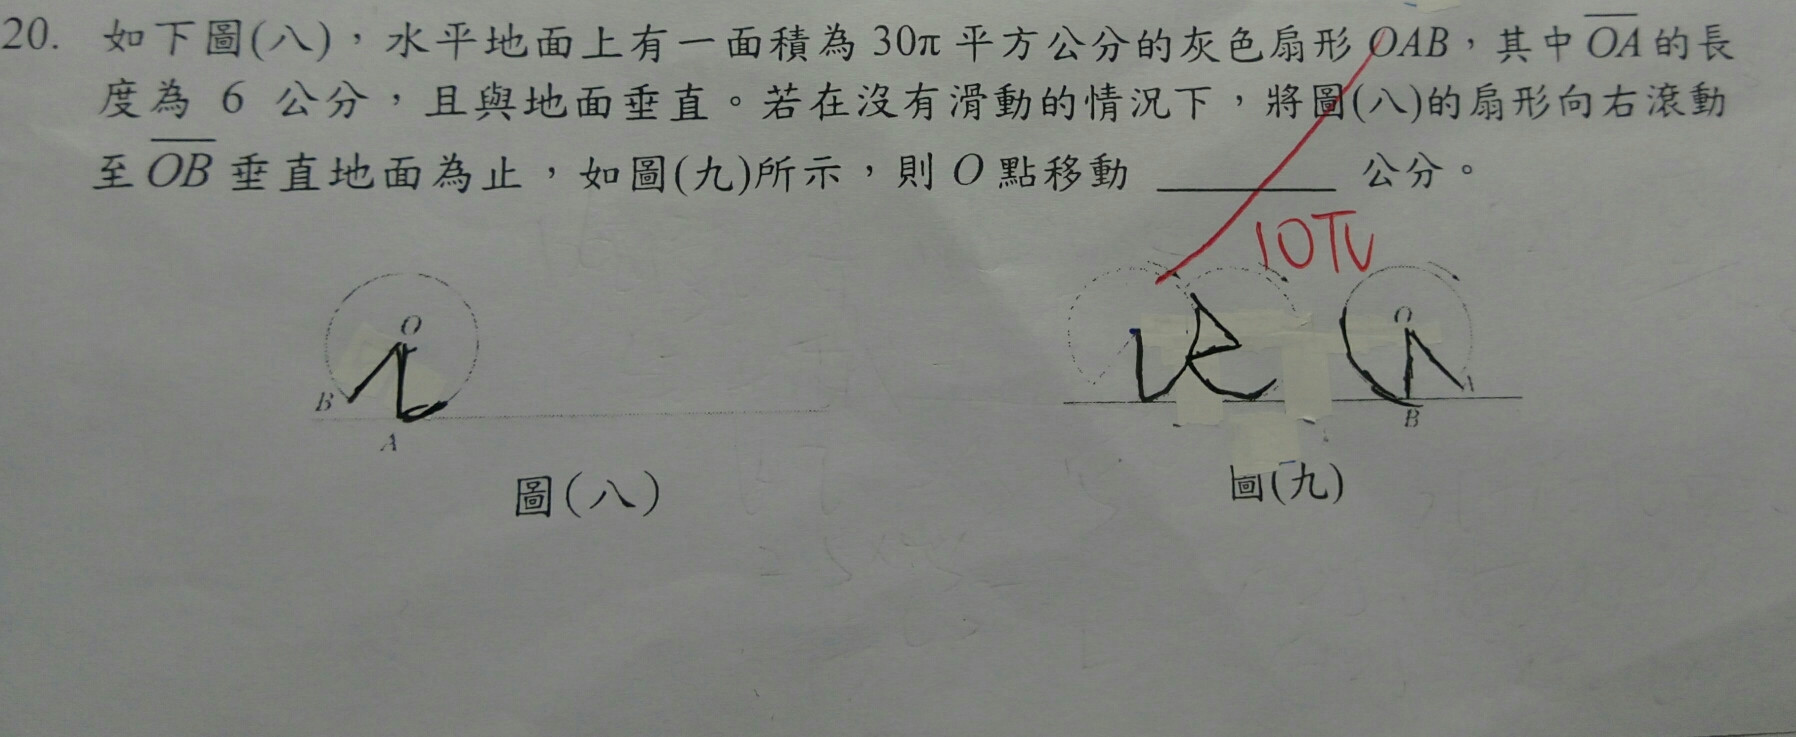 20. 如下圖(八)，水平地面上有一面積為 30π 平方公分的灰色扇形 OAB，其中 OA 的長
度為 6 公分，且與地面垂直。若在沒有滑動的情況下，將圖(八)的扇形向右滾動
至 OB 垂直地面為止，如圖(九)所示，則 O 點移動 ______ 公分。
10π
O
B
A
O
A
B
圖(八)
圖(九)